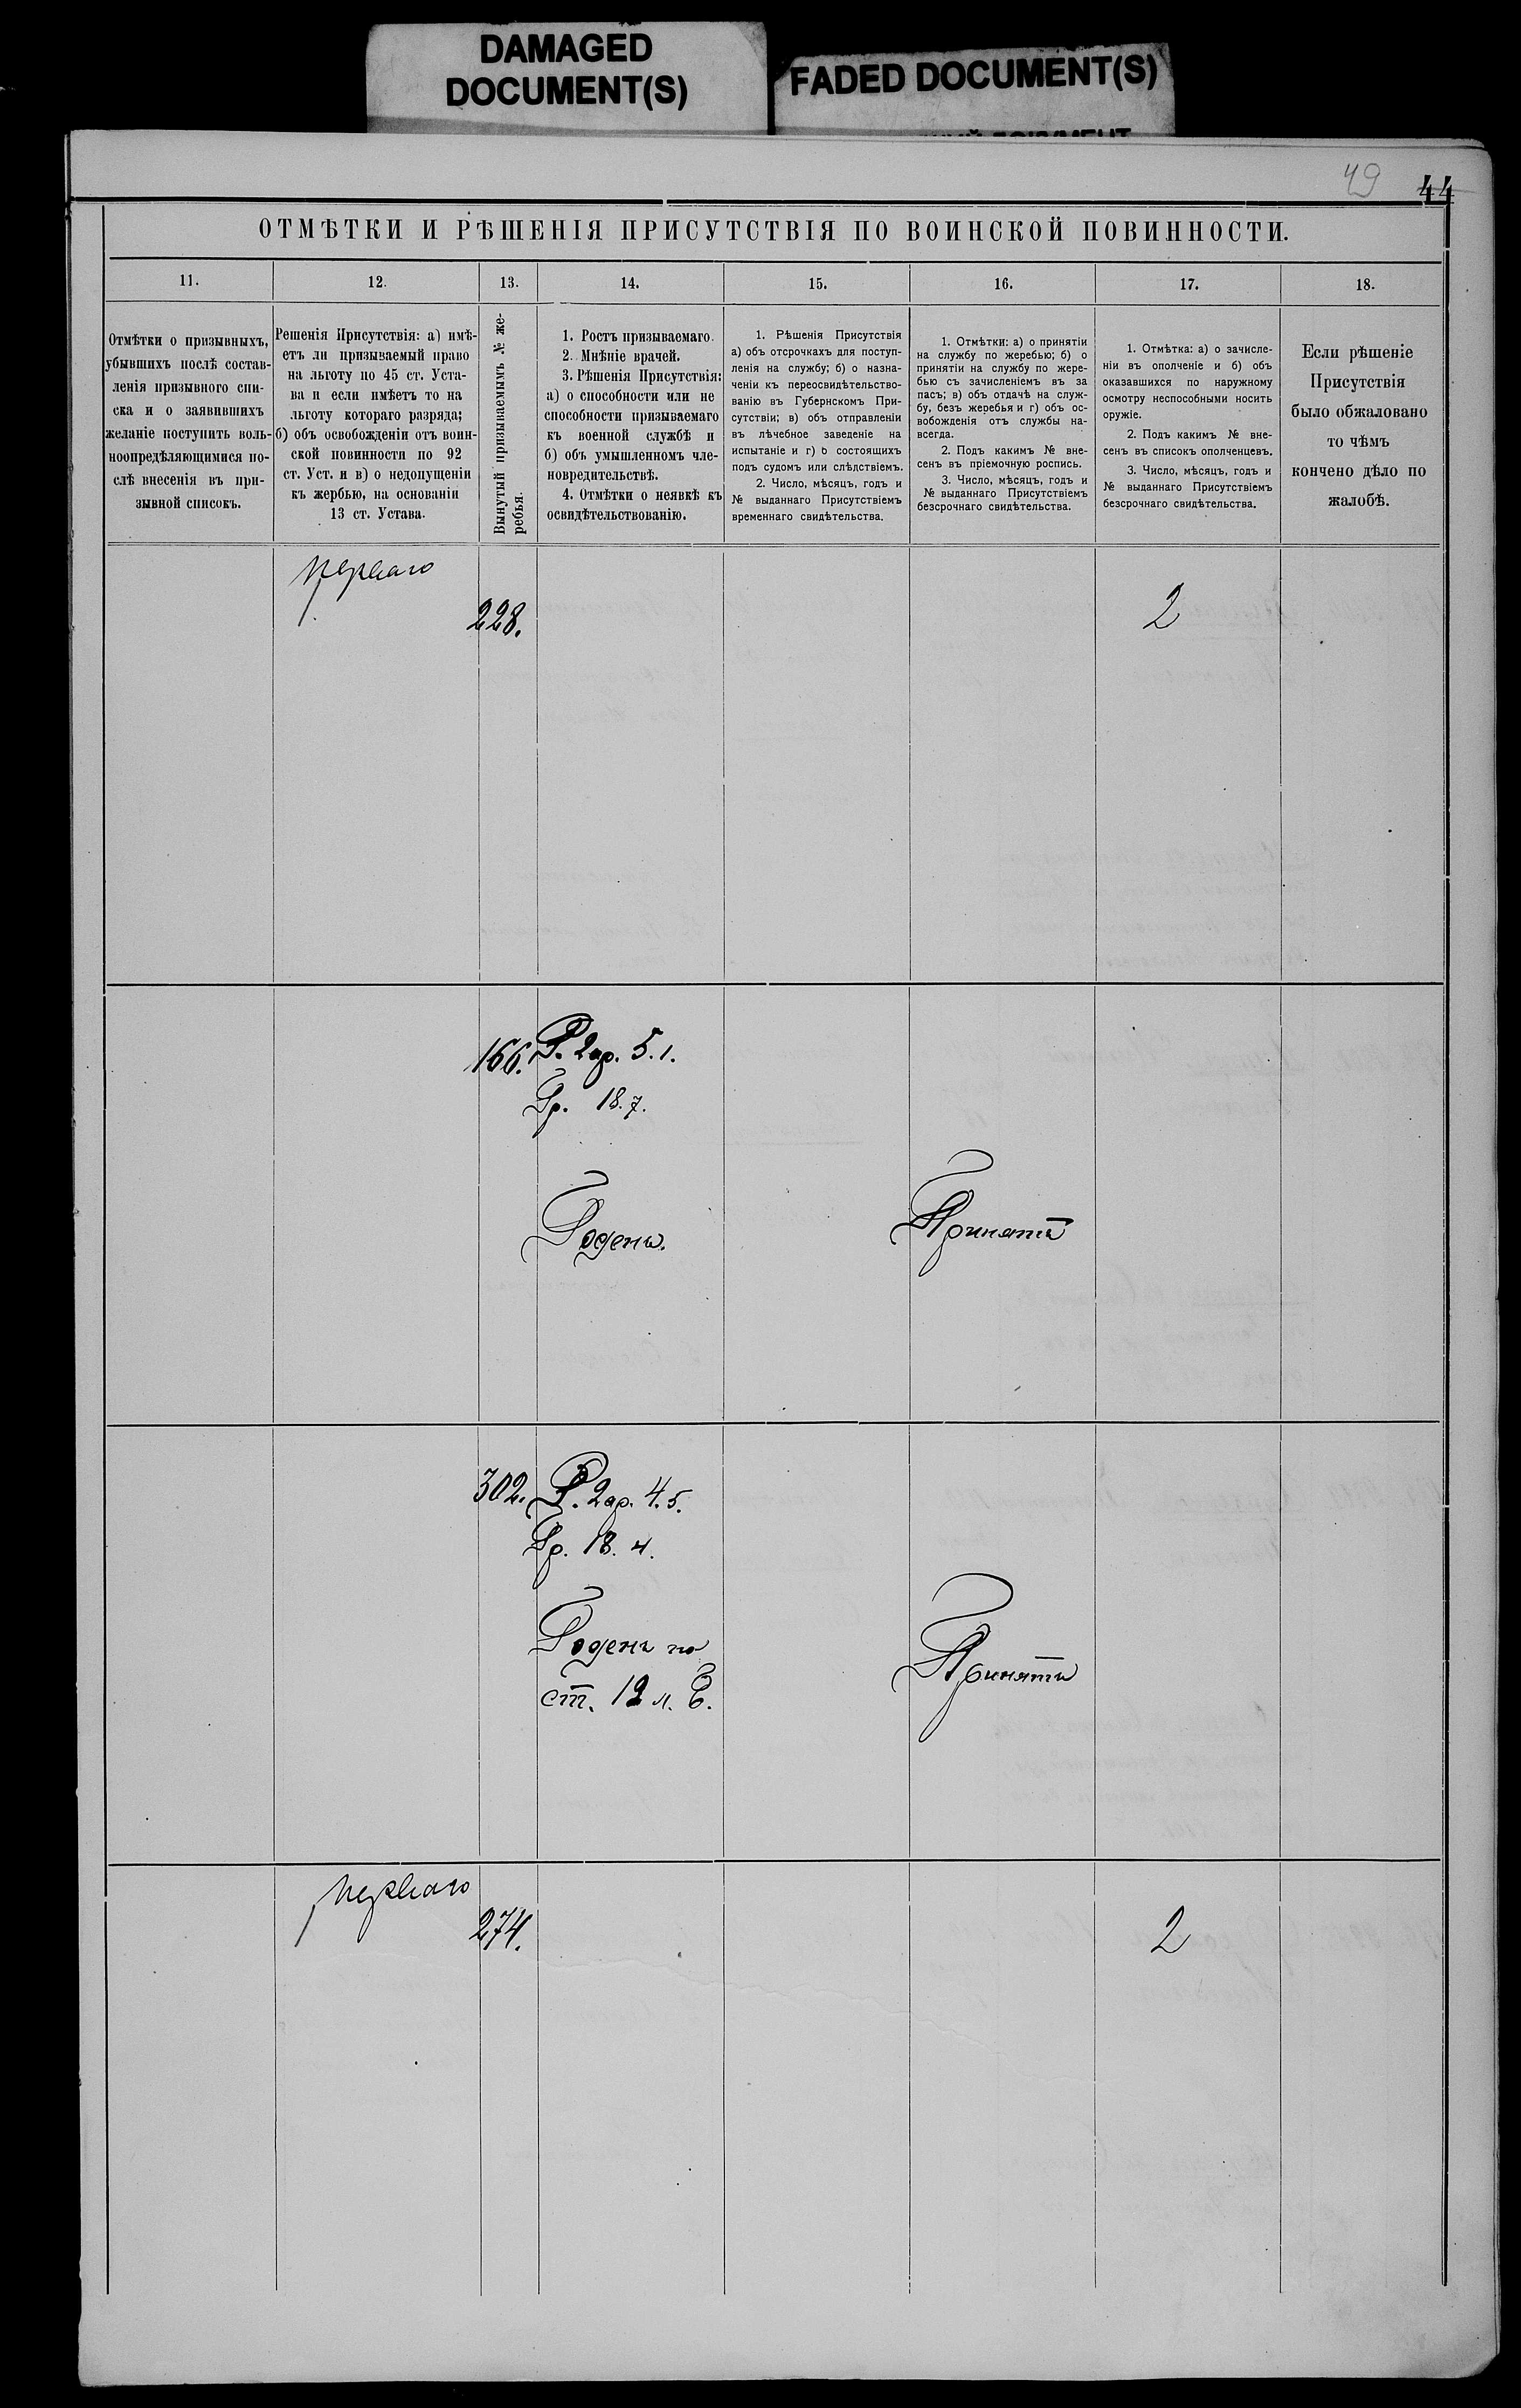 DAMAGED
DOCUMENT(S)
FADED DOCUMENT(S)
49 44
ОТМѢТКИ И РѢШЕНІЯ ПРИСУТСТВІЯ ПО ВОИНСКОЙ ПОВИННОСТИ.
11.
12.
13.
14.
15.
16.
17.
18.
Отмѣтки о призывныхъ,
убывшихъ послѣ состав-
ленія призывного спи-
ска и о заявившихъ
желаніе поступить воль-
ноопредѣляющимися по-
слѣ внесенія въ при-
зывной списокъ.
Решенія Присутствія: а) имѣ-
етъ ли призываемый право
на льготу по 45 ст. Уста-
ва и если имѣетъ то на
льготу котораго разряда;
б) объ освобожденіи отъ воин-
ской повинности по 92
ст. Уст. и в) о недопущеніи
къ жербью, на основаніи
13 ст. Устава.
Вынутый призываемымъ № же-
ребья.
1. Ростъ призываемаго.
2. Мнѣніе врачей.
3. Рѣшенія Присутствія:
а) о способности или не
способности призываемаго
къ военной службѣ и
б) объ умышленномъ чле-
новредительствѣ.
4. Отмѣтки о неявкѣ къ
освидѣтельствованію.
1. Рѣшенія Присутствія
а) объ отсрочкахъ для поступ-
ленія на службу; б) о назна-
ченіи къ переосвидѣтельство-
ванію въ Губернскомъ При-
сутствіи; в) объ отправленіи
въ лѣчебное заведеніе на
испытаніе и г) о состоящихъ
подъ судомъ или слѣдствіемъ.
2. Число, мѣсяцъ, годъ и
№ выданнаго Присутствіемъ
временнаго свидѣтельства.
1. Отмѣтки: а) о принятіи
на службу по жеребью; б) о
принятіи на службу по жере-
бью съ зачисленіемъ въ за
пасъ; в) объ отдачѣ на служ-
бу, безъ жеребья и г) объ ос-
вобожденія отъ службы на-
всегда.
2. Подъ какимъ № вне-
сенъ въ пріемочную роспись.
3. Число, мѣсяцъ, годъ и
№ выданнаго Присутствіемъ
безсрочнаго свидѣтельства.
1. Отмѣтка: а) о зачисле-
ніи въ ополченіе и б) объ
оказавшихся по наружному
осмотру неспособными носить
оружіе.
2. Подъ какимъ № вне-
сенъ въ списокъ ополченцевъ.
3. Число, мѣсяцъ, годъ и
№ выданнаго Присутствіемъ
безсрочнаго свидѣтельства.
Если рѣшеніе
Присутствія
было обжаловано
то чѣмъ
кончено дѣло по
жалобѣ.
перваго
228.
2
166. Р. 2ар. 5.1.
Гр. 18.7.
Годенъ.
Принятъ
302. Р. 2ар. 4.5.
Гр. 18.4.
Годенъ по
ст. 12 л. Б.
Принятъ
перваго
274.
2